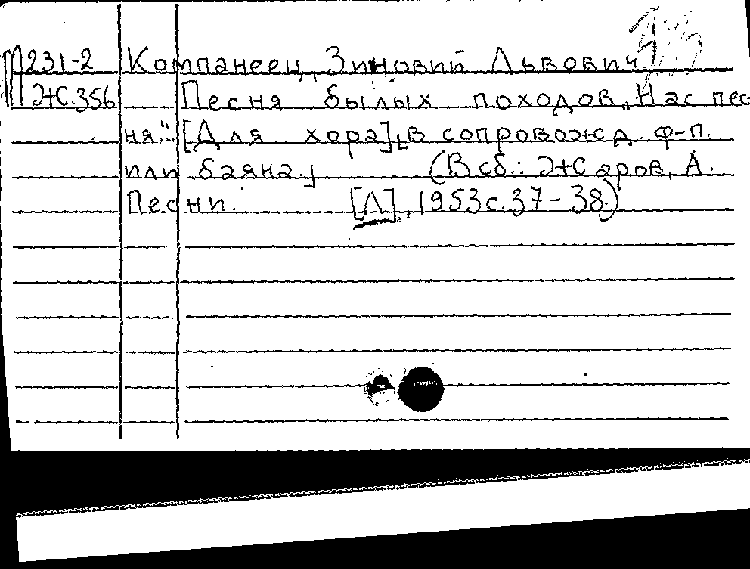 М231-2 Компанеец, Зиновий Львович
Ж356 Песня былых походов. "Нас пес
ня.." [Для хора], [в сопровожд. ф-п.
или баяна] (В сб.: Жаров, А.
Песни. [Л], 1953 с. 37-38)